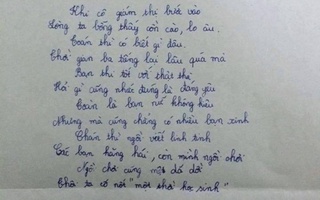 Khi cô giám thi bước vào
Lòng ta bỗng thấy cồn cào, lo âu.
Toán thì có biết gì đâu.
Thời gian ba tiếng lại lâu quá mà
Bạn thì tốt với thật thà
Hỏi gì cũng nhác đúng là đáng yêu
Toàn là bạn nữ không kìa
Nhưng mà cũng chẳng có nhiều bạn xinh
Chán thì ngồi viết linh tinh
Các bạn hăng hái, còn mình ngồi chơi
Ngồi chơi cũng một đời
Thôi ta có nói "một thời học sinh"